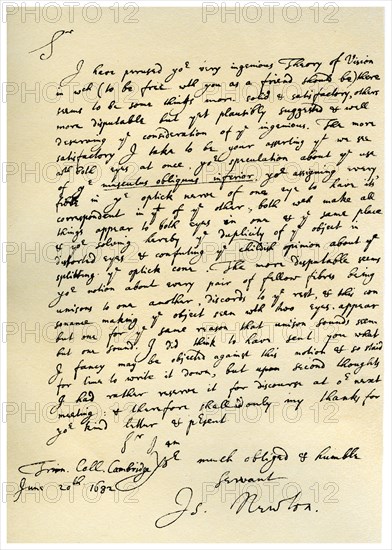 Sr
I have perused yor very ingenious Theory of Vision
in wch (to be free wth you as a friend should be) there
seems to be some things more solid & satisfactory, others
more disputable but yet plausibly suggested & well
deserving ye consideration of ye ingenious. The more
satisfactory I take to be your asserting yt we see
wth both eyes at once, yor speculation about ye use
of ye musculus obliquus inferior, yor assigning every
fibre in ye optick nerve of one eye to have its
correspondent in yt of ye other, both wch make all
things appear to both eyes in one & ye same place
& yor solving hereby ye duplicity of ye object in
distorted eyes & confuting ye childish opinion about ye
splitting ye optick cone. The more disputable seems
yor notion about every pair of fellow fibres being
unisons to one another, discords to ye rest, & this con
sonance making ye object seen with two eyes appear
but one for ye same reason that unison sounds seem
but one sound. I did think to have sent you what
I fancy may be objected against this notion & so staid
for time to write it down, but upon second thoughts
I had rather reserve it for discourse at or next
meeting: & therefore shall add only my thanks for
yor kind letter & present
Sr I am
Yor much obliged & humble
Trin. Coll. Cambridge Servant
June 20th 1682
Is. Newton.